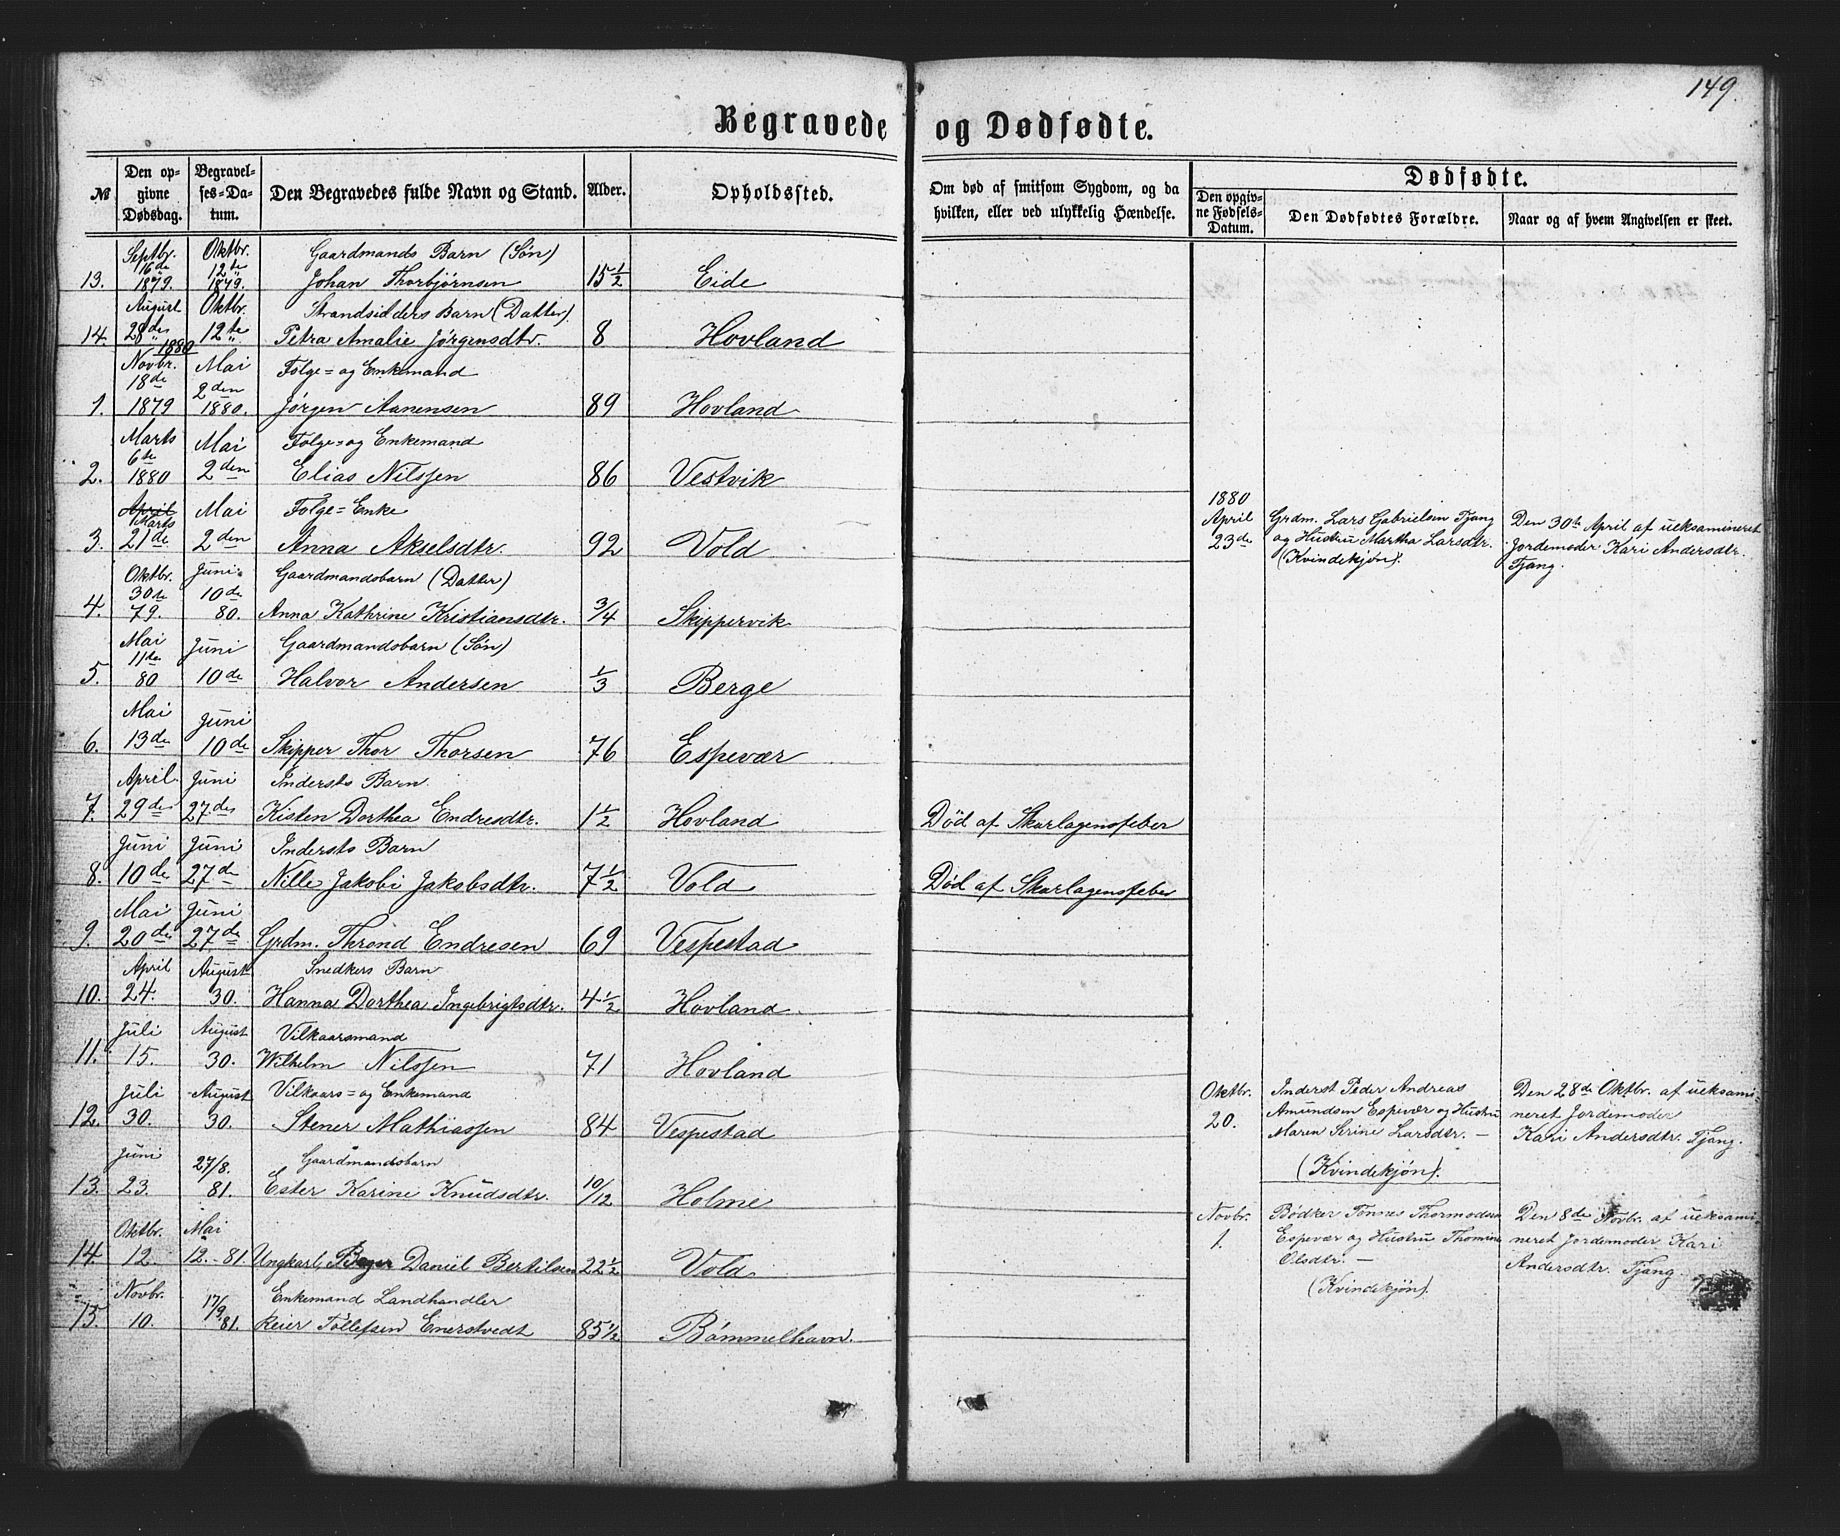 149.
Begravede og Dødfødte.
№
Den opgivne Dødsdag.
Begravelses=Datum.
Den Begravedes fulde Navn og Stand.
Alder.
Opholdssted.
Om død af smitsom Sygdom, og da hvilken, eller ved ulykkelig Hændelse.
Dødfødte.
Den opgivne Fødsels-Datum.
Den Dødfødtes Forældre.
Naar og af hvem Angivelsen er skeet.
Septbr. Oktbr. Gaardmands Barn (Søn)
13. 16de 1879. 12te 1879. Johan Thorbjørnsen 15 1/2 Eide
August Oktbr. Strandsidders Barn (Datter).
14. 28de 12te Petra Amalie Jørgensdtr. 8 Hovland
1880
Novbr. Mai Følge= og Enkemand
1. 18de 1879 2den 1880. Jørgen Aanensen 89 Hovland
Marts Mai Følge= og Enkemand
2. 6te 1880 2den Elias Nilssen 86 Vestvik
April Mai Følge= Enke
3. Marts 21de 2den Anna Akselsdtr. 92 Vold
Oktbr. Juni Gaardmandsbarn (Datter)
4. 30te 79. 10de 80. Anna Kathrine Kristiansdtr. 3/4 Skippervik
Mai Juni Gaardmandsbarn (Søn)
5. 11te 80 10de Halvor Andersen 1/3 Berge
Mai Juni
6. 13de 10de Skipper Thor Thorsen 76 Espevær
April Juni Indersts Barn.
7. 29de 27de Kisten Dorthea Endresdtr. 1 1/2 Hovland Død af Skarlagensfeber
Juni Juni Indersts Barn
8. 10de 27de Nille Jakobi Jakobsdtr. 7 1/2 Vold Død af Skarlagensfeber
Mai Juni
9. 20de 27de Grdm. Thrond Endresen 69 Vespestad
April August Snedkers Barn
10. 24. 30. Hanna Dorthea Ingebrigtsdtr. 4 1/2 Hovland
Juli August Vilkaarsmand
11. 15. 30. Wilhelm Nilssen 71 Hovland
Juli August Vilkaars= og Enkemand
12. 30. 30. Stener Mathiassen 84 Vespestad
Juni 27/8. Gaardmandsbarn
13. 23. 81. Ester Karine Knudsdtr. 10/12 Holme
Oktbr. Mai
14. 12. 12.-81. Ungkarl Daniel Bertilsen 22 1/2 Vold
Novbr. 17/9 Enkemand Landhandler
15. 10. 81. Reier Tollefsen Enerstvedt 85 1/2 Bømmelhavn.
1880
April Grdm. Lars Gabrielsen Tjang Den 30te April af ueksamineret
23de og Hustru Martha Larsdtr. Jordemoder Kari Andersdtr.
(Kvindekjøn). Tjang.
Oktbr. Inderst Peder Andreas Den 28de Oktbr. af ueksami-
20. Amundsen Espevær og Hustru neret Jordemoder
Maren Serine Larsdtr. — Kari Andersdtr. Tjang.
(Kvindekjøn).
Novbr. Bødker Tønnes Thormodsen Den 8de Novbr. af ueksami-
1. Espevær og Hustru Thomine neret Jordemoder Kari
Olsdtr. — Andersdtr. Tjang
(Kvindekjøn).